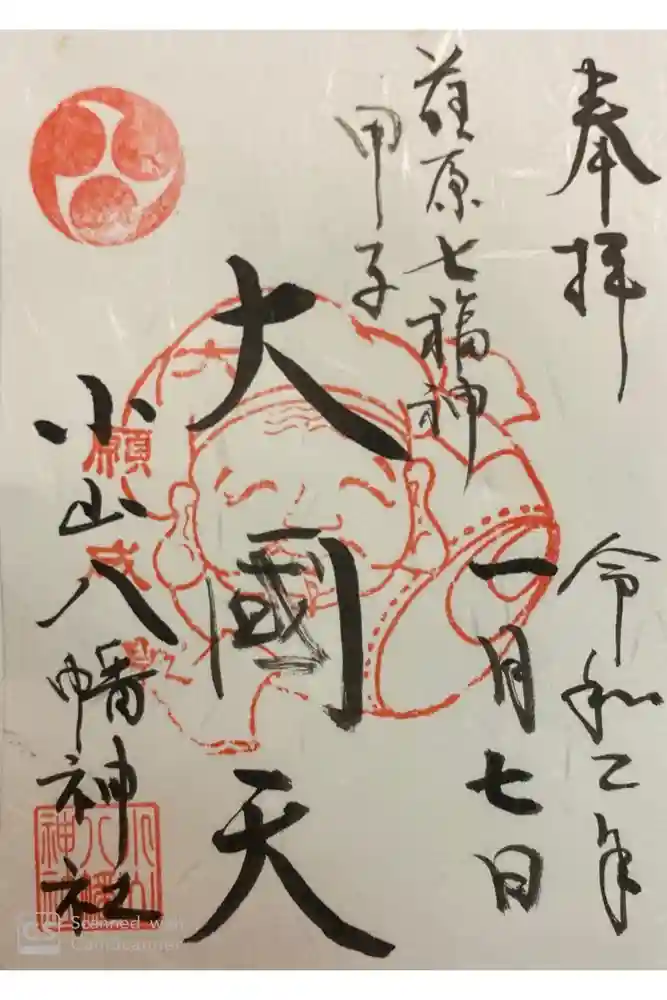 奉拝
令和二年
一月七日
荏原七福神
甲子
大國天
小山八幡神社
Scanned with
CamScanner